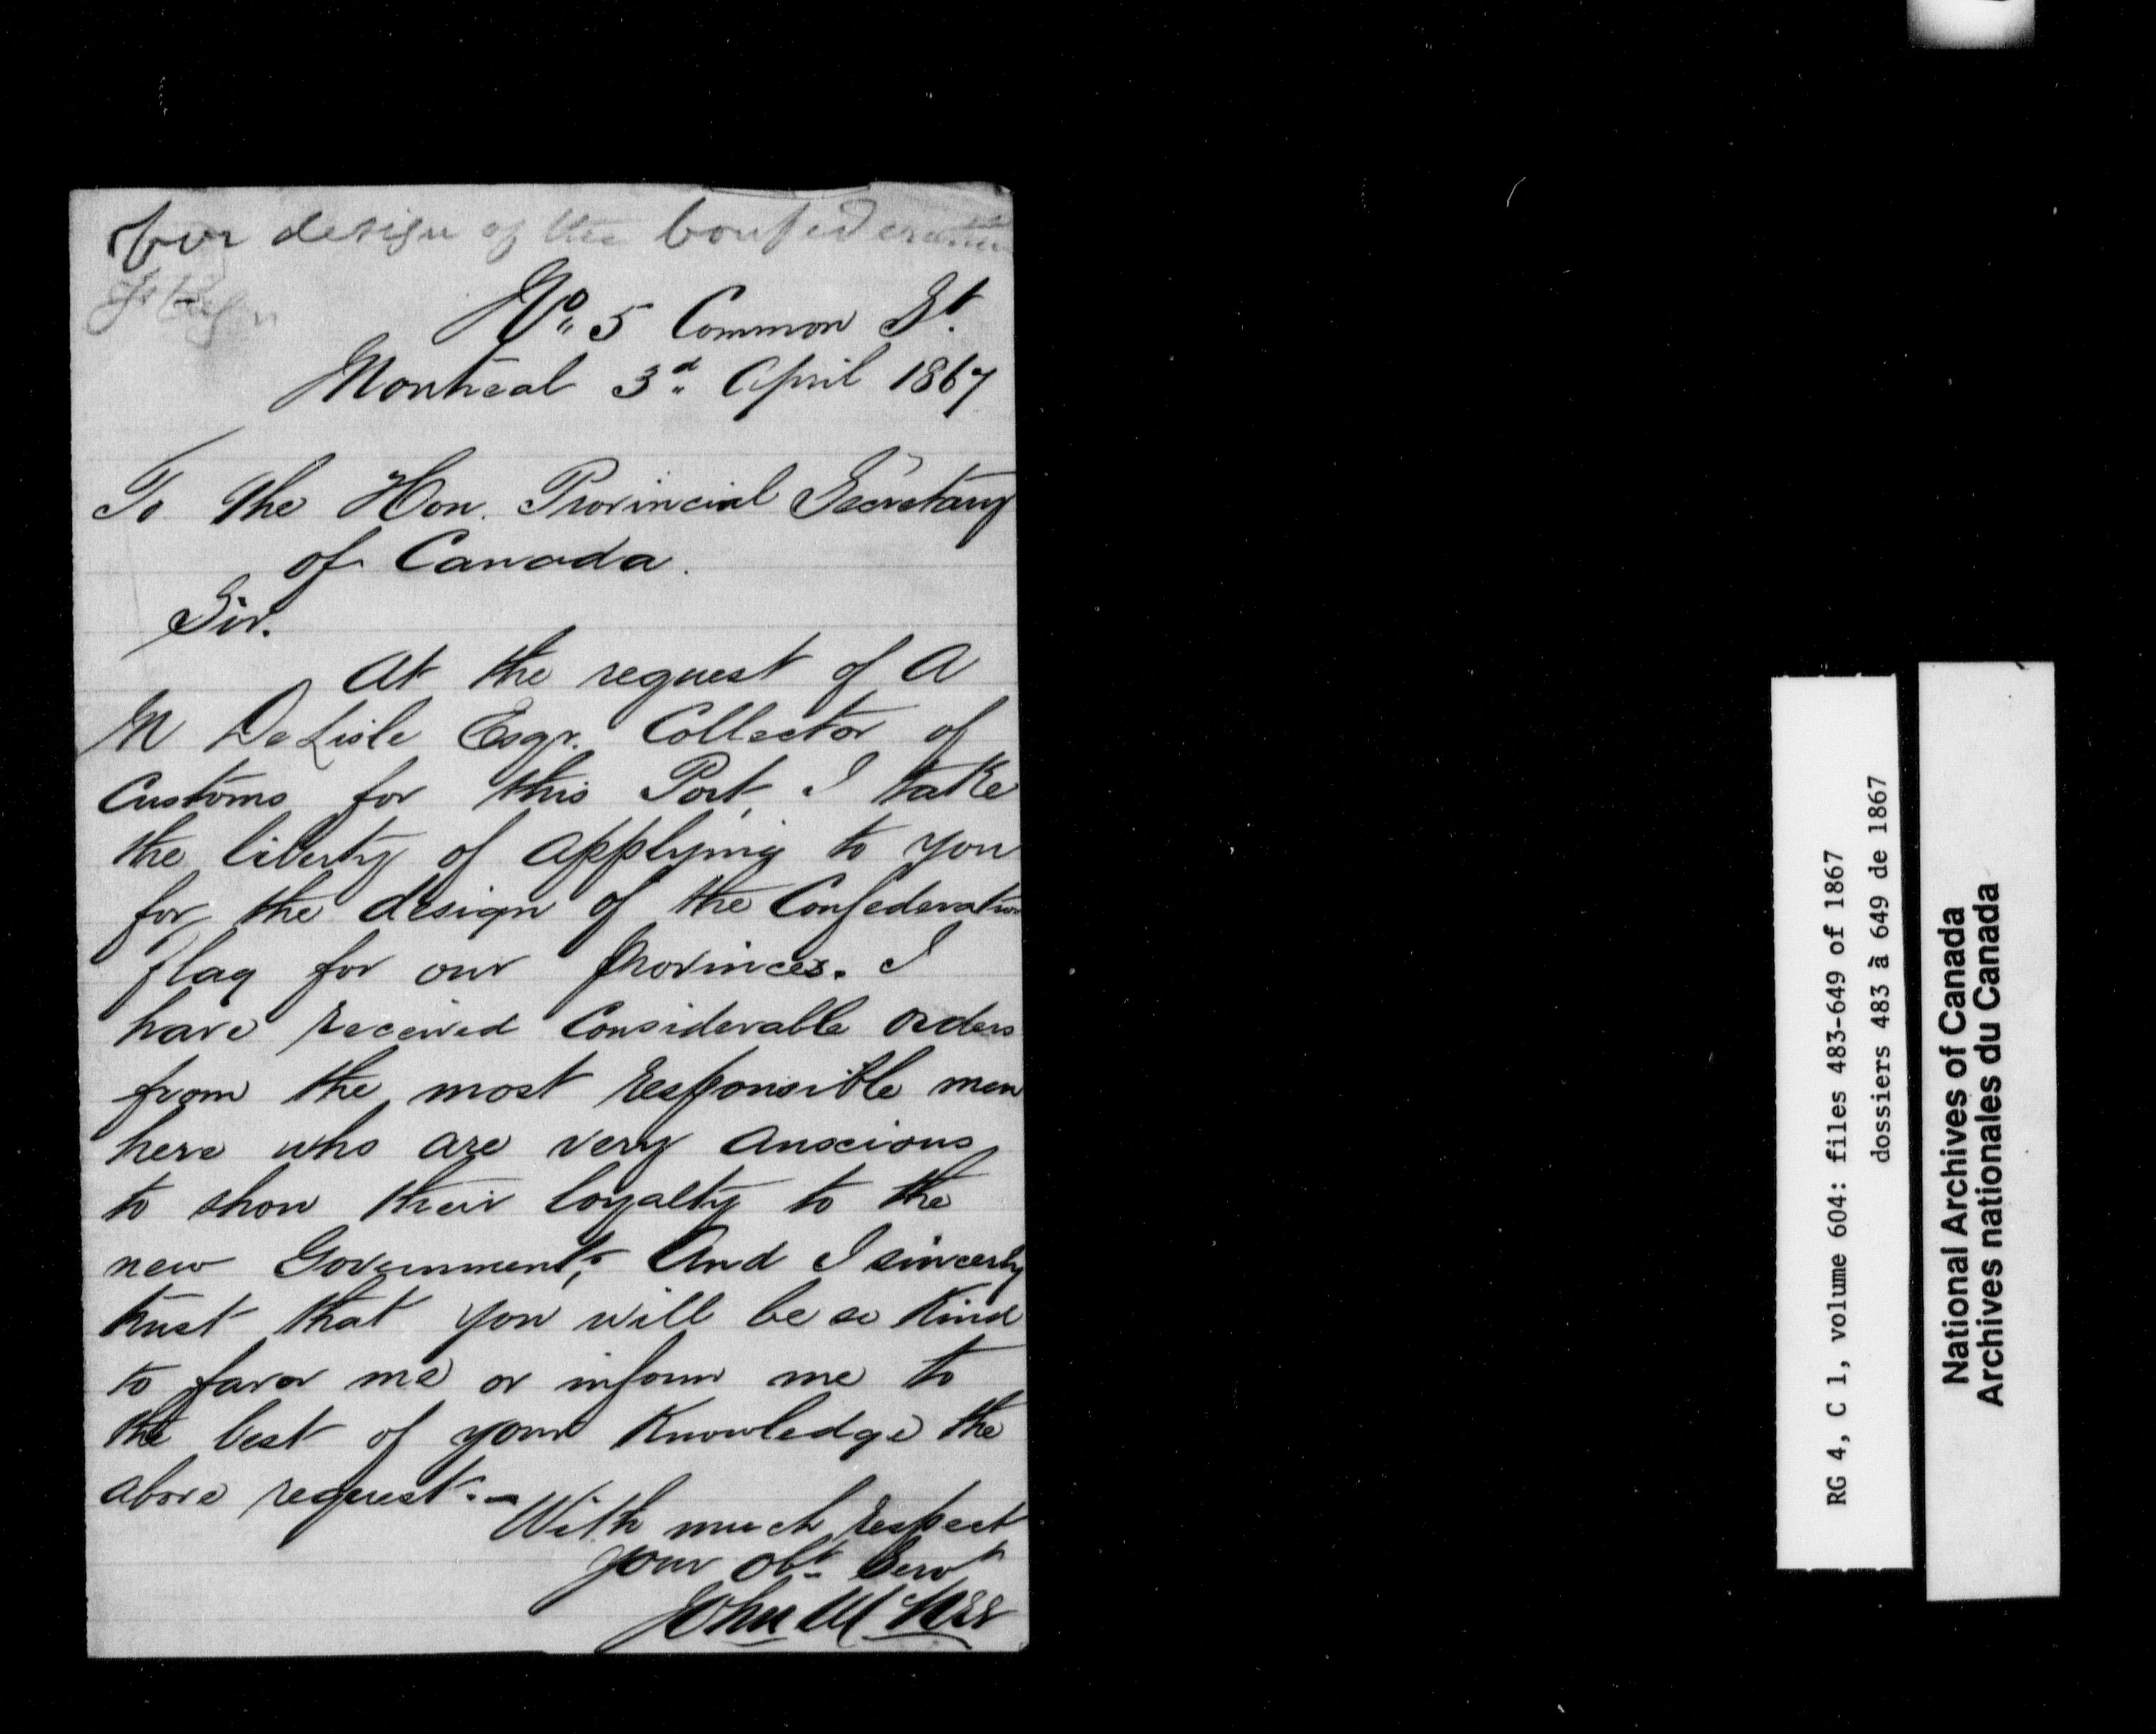 for design of the Confederation
No. 5 Common St.
Montreal 3d April 1867
To the Hon. Provincial Secretary
of Canada.
Sir.
At the request of A
M DeLisle Esqr. Collector of
Customs for this Port, I take
the liberty of applying to you
for the design of the Confederation
flag for our provinces. I
have received Considerable orders
from the most responsible men
here who are very anscious
to show their loyalty to the
new Government; And I sincerly
trust that you will be so kind
to favor me or inform me to
the best of your Knowledge the
above request.—
With much respect
your obt. Servt
John
RG 4, C 1, volume 604: files 483-649 of 1867
dossiers 483 à 649 de 1867
National Archives of Canada
Archives nationales du Canada